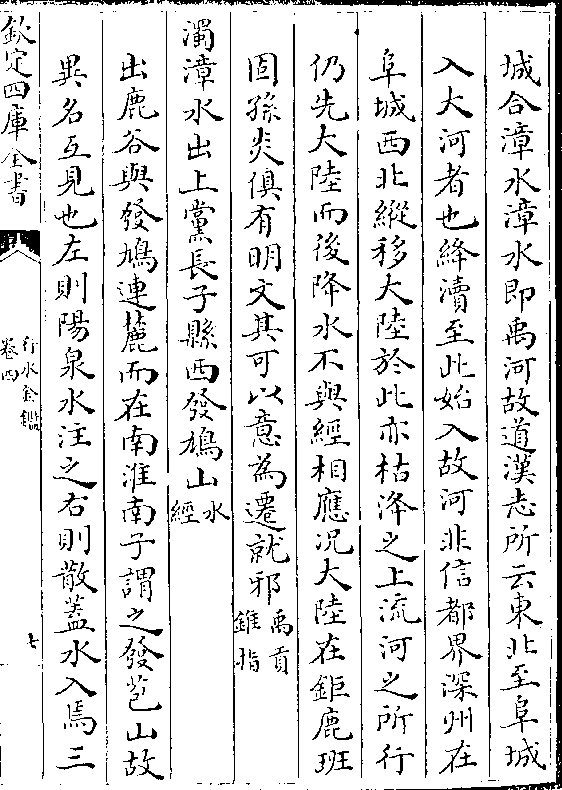 城合漳水漳水即禹河故道漢志所云東北至阜城
入大河者也絳瀆至此始入故河非信都界深州在
阜城西北縱移大陸於此亦枯洚之上流河之所行
仍先大陸而後降水不與經相應况大陸在鉅鹿班
固孫炎俱有明文其可以意為遷就邪禹貢
錐指
濁漳水出上黨長子縣西發鳩山水
經
出鹿谷與發鳩連麓而在南淮南子謂之發苞山故
異名互見也左則陽泉水注之右則散蓋水入焉三
欽定四庫全書
行水金鑑
卷四
七